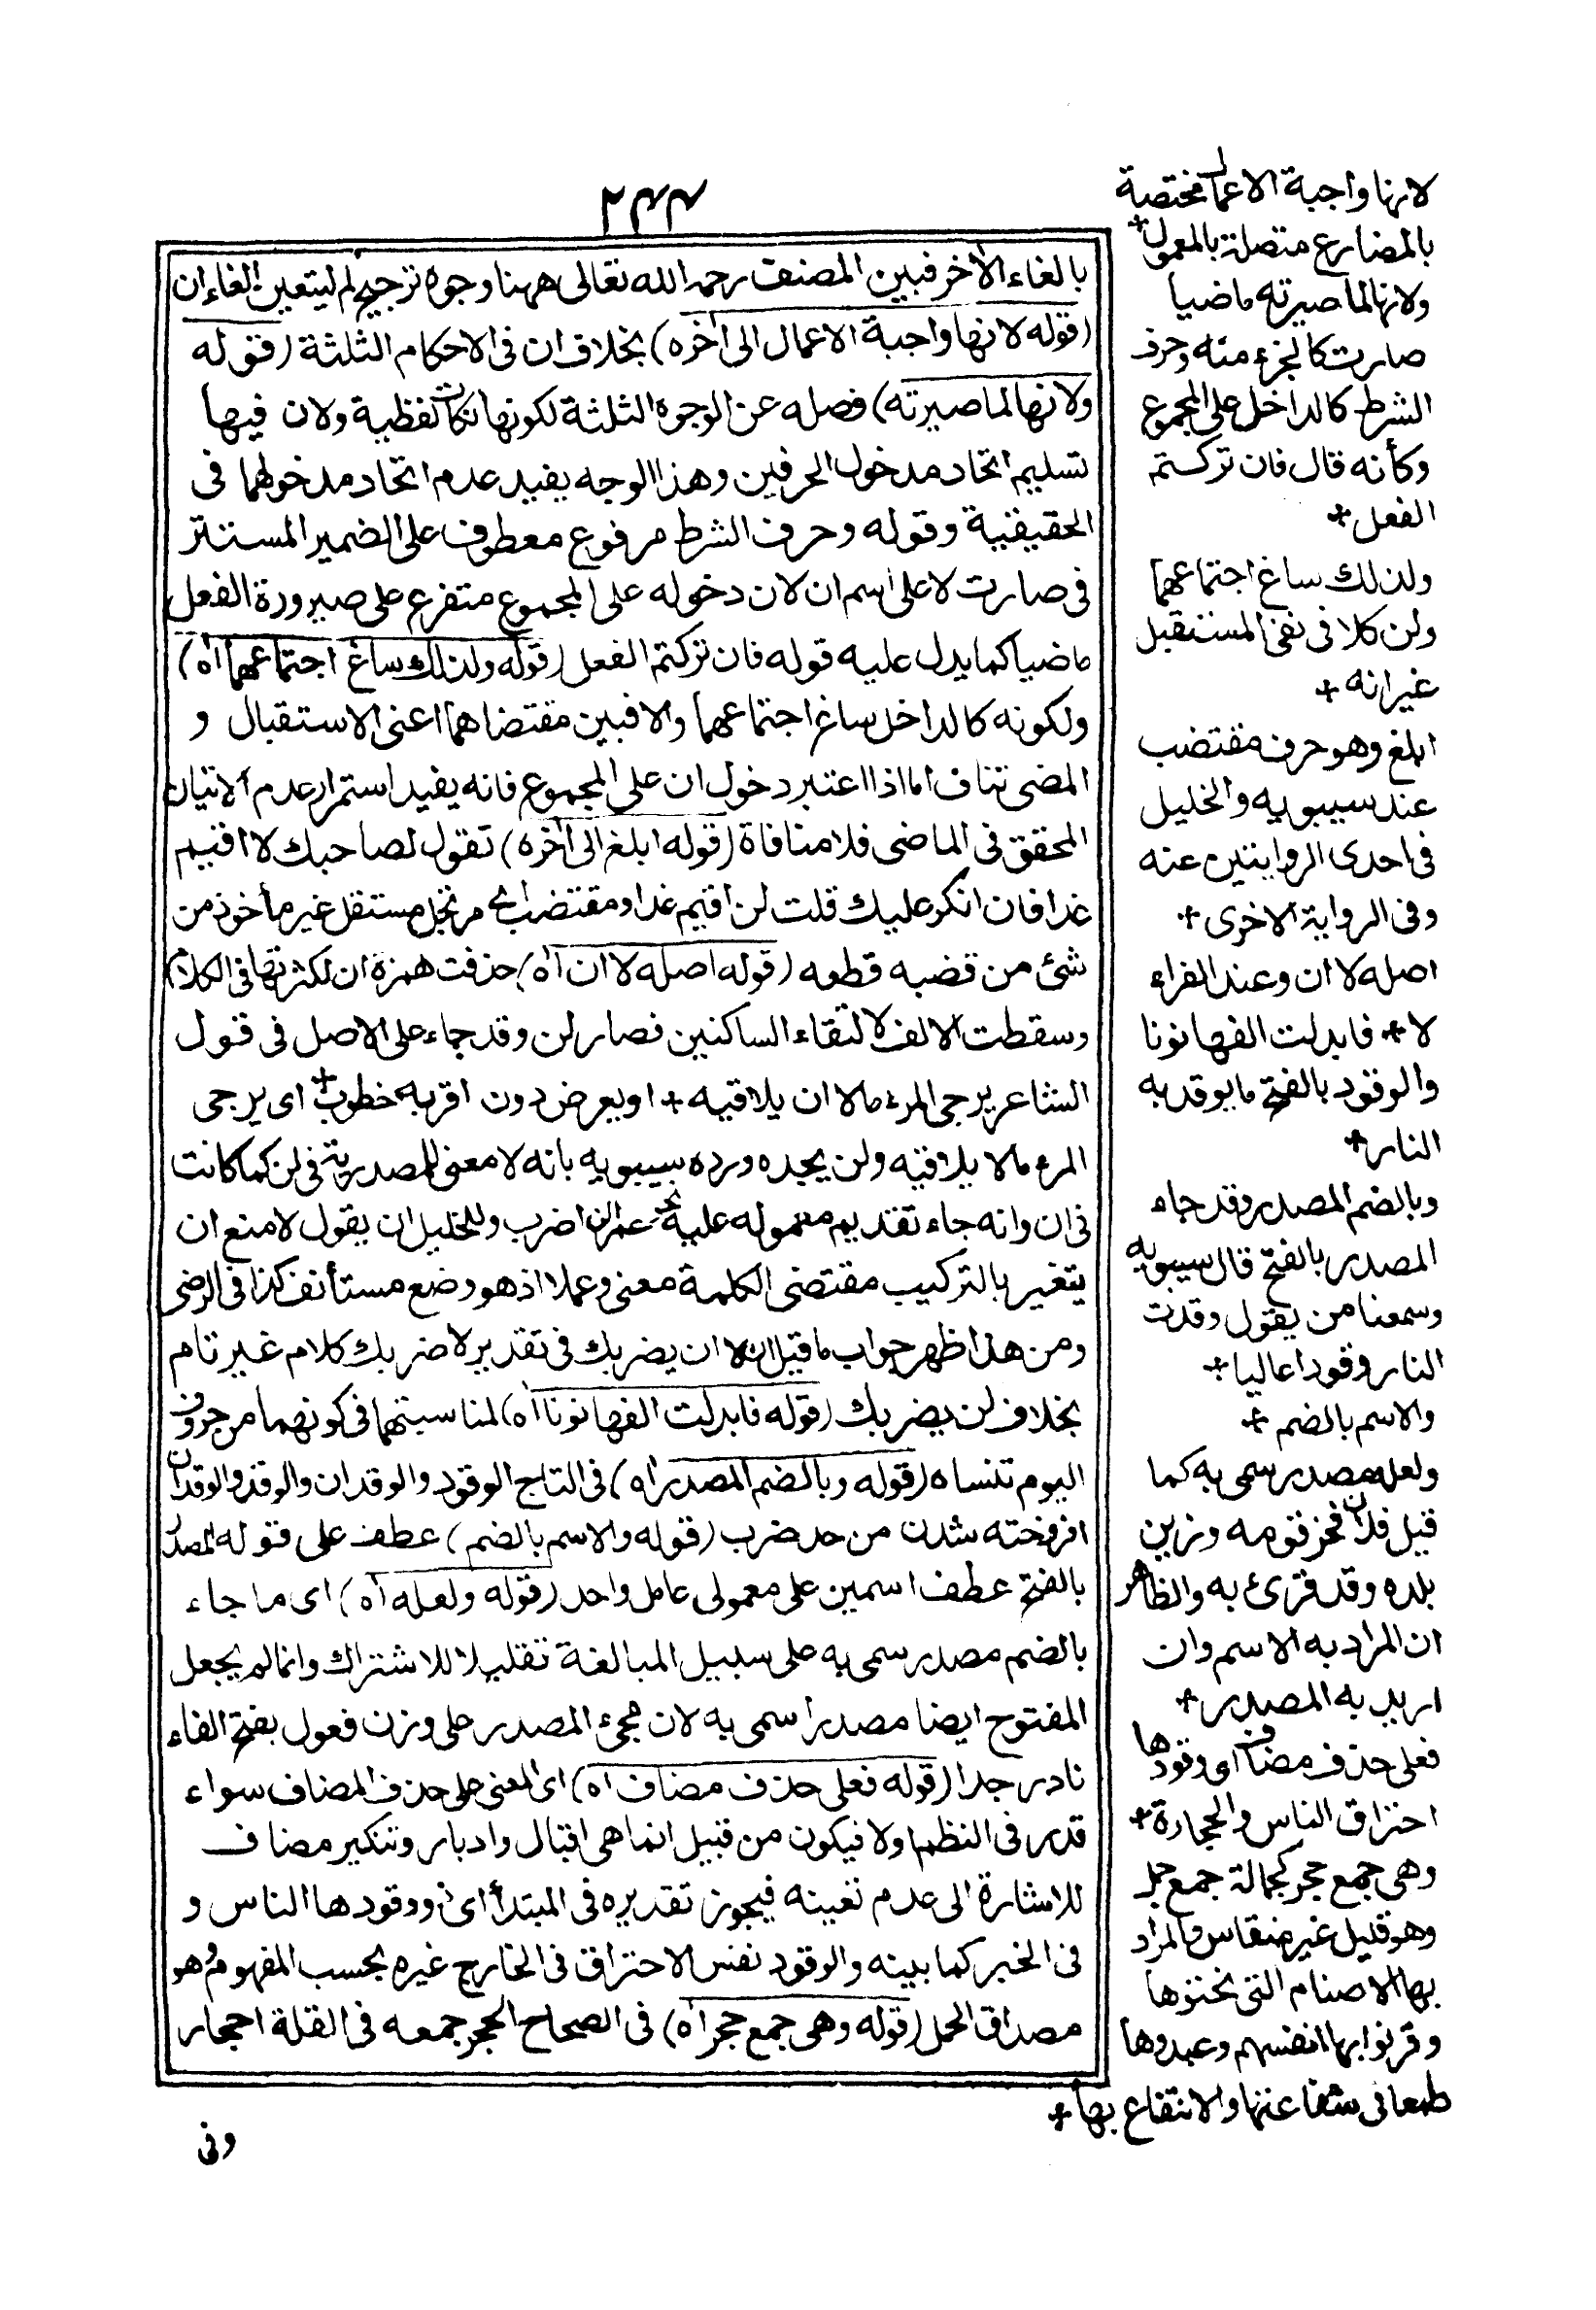 ٢٤٤
بالغاء الأخر فبين المصنف رحمه الله تعالى ههنا وجوه ترجيح لم ليتعين الغاء ان
(قوله لانها واجبة الاعمال الى آخره) بخلاف ان فى الاحكام الثلثة (قوله
ولانها لما صيرته) فصله عن الوجوه الثلثة لكونها نكات لفظية ولان فيها
تسليم اتحاد مدخول الحرفين وهذا الوجه يفيد عدم اتحاد مدخولهما فى
الحقيقية وقوله وحرف الشرط مرفوع معطوف على الضمير المستتر
فى صارت لا على اسم ان لان دخوله على المجموع متفرع على صيرورة الفعل
ماضيا كما يدل عليه قوله فان تركتم الفعل (قوله ولذلك ساغ اجتماعهما اه)
ولكونه كالداخل ساغ اجتماعهما والا فبين مقتضاهما اعنى الاستقبال و
المضى تناف اما اذا اعتبر دخول ان على المجموع فانه يفيد استمرار عدم الاتيان
المحقق فى الماضى فلا منافاة (قوله ابلغ الى آخره) تقول لصاحبك لا اقيم
غدا فان انكر عليك قلت لن اقيم غدا ومقتضب اى مرتجل مستقل غير مأخوذ من
شئ من قضبه قطعه (قوله اصله لا ان اه) حذفت همزة ان لكثرتها فى الكلام
وسقطت الالف لالتقاء الساكنين فصار لن وقد جاء على الاصل فى قول
الشاعر يرجى المرء ما لا ان يلاقيه + او يعرض دون اقربه خطوب + اى يرجى
المرء ما لا يلاقيه ولن يجده ورده سيبويه بانه لا معنى للمصدرية فى لن كما كانت
فى ان وانه جاء تقديم معموله عليه نحو عمرا لن اضرب وللخليل ان يقول لا منع ان
يتغير بالتركيب مقتضى الكلمة معنى وعملا اذ هو وضع مستأنف كذا فى الرضى
ومن هذا ظهر جواب ما قيل ان لا ان يضربك فى تقدير لا ضربك كلام غير تام
بخلاف لن يضربك (قوله فابدلت الفها نونا اه) لمناسبتهما فى كونهما من حروف
اليوم تنساه (قوله وبالضم المصدر اه) فى التاج الوقود والوقدان والوقد والوقدان
افروخته شدن من حد ضرب (قوله والاسم بالضم) عطف على قوله المصدر
بالفتح عطف اسمين على معمولى عامل واحد (قوله ولعله اه) اى ما جاء
بالضم مصدر سمى به على سبيل المبالغة تقليلا للاشتراك وانما لم يجعل
المفتوح ايضا مصدرا سمى به لان مجئ المصدر على وزن فعول بفتح الفاء
نادر جدا (قوله فعلى حذف مضاف اه) اى المعنى على حذف المضاف سواء
قدر فى النظم اولا فيكون من قبيل انما هى اقبال وادبار وتنكير مضاف
للاشارة الى عدم تعينه فيجوز تقديره فى المبتدأ اى ذو وقودها الناس و
فى الخبر كما بينه والوقود نفس الاحتراق فى الخارج غيره بحسب المفهوم وهو
مصداق الحمل (قوله وهى جمع حجر اه) فى الصحاح الحجر جمعه فى القلة احجار
وفى
لانها واجبة الاعمال مختصة
بالمضارع متصلة بالمعمول +
ولانها لما صيرته ماضيا
صارت كالجزء منه وحرف
الشرط كالداخل على المجموع
وكأنه قال فان تركتم
الفعل +
ولذلك ساغ اجتماعهما
ولن كلا فى نفى المستقبل
غير انه +
ابلغ وهو حرف مقتضب
عند سيبويه والخليل
فى احدى الروايتين عنه
وفى الرواية الاخرى +
اصله لا ان وعند الفراء
لا + فابدلت الفها نونا
والوقود بالفتح ما يوقد به
النار +
وبالضم المصدر وقد جاء
المصدر بالفتح قال سيبويه
وسمعنا من يقول وقدت
النار وقودا عاليا +
والاسم بالضم +
ولعله مصدر سمى به كما
قيل فلان فخر قومه وزين
بلده وقد قرئ به والظاهر
ان المراد به الاسم وان
اريد به المصدر +
فعلى حذف مضاف اى وقودها
احتراق الناس والحجارة +
وهى جمع حجر كجمالة جمع جمل
وهو قليل غير منقاس والمراد
بها الاصنام التى نحتوها
وقرنوا بها انفسهم وعبدوها
طمعا فى شفاعتها والانتفاع بها +